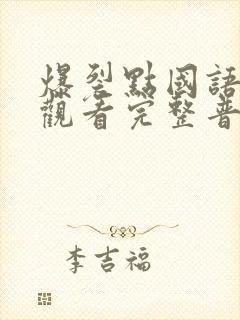 爆裂點國語
觀看完整普
李吉福